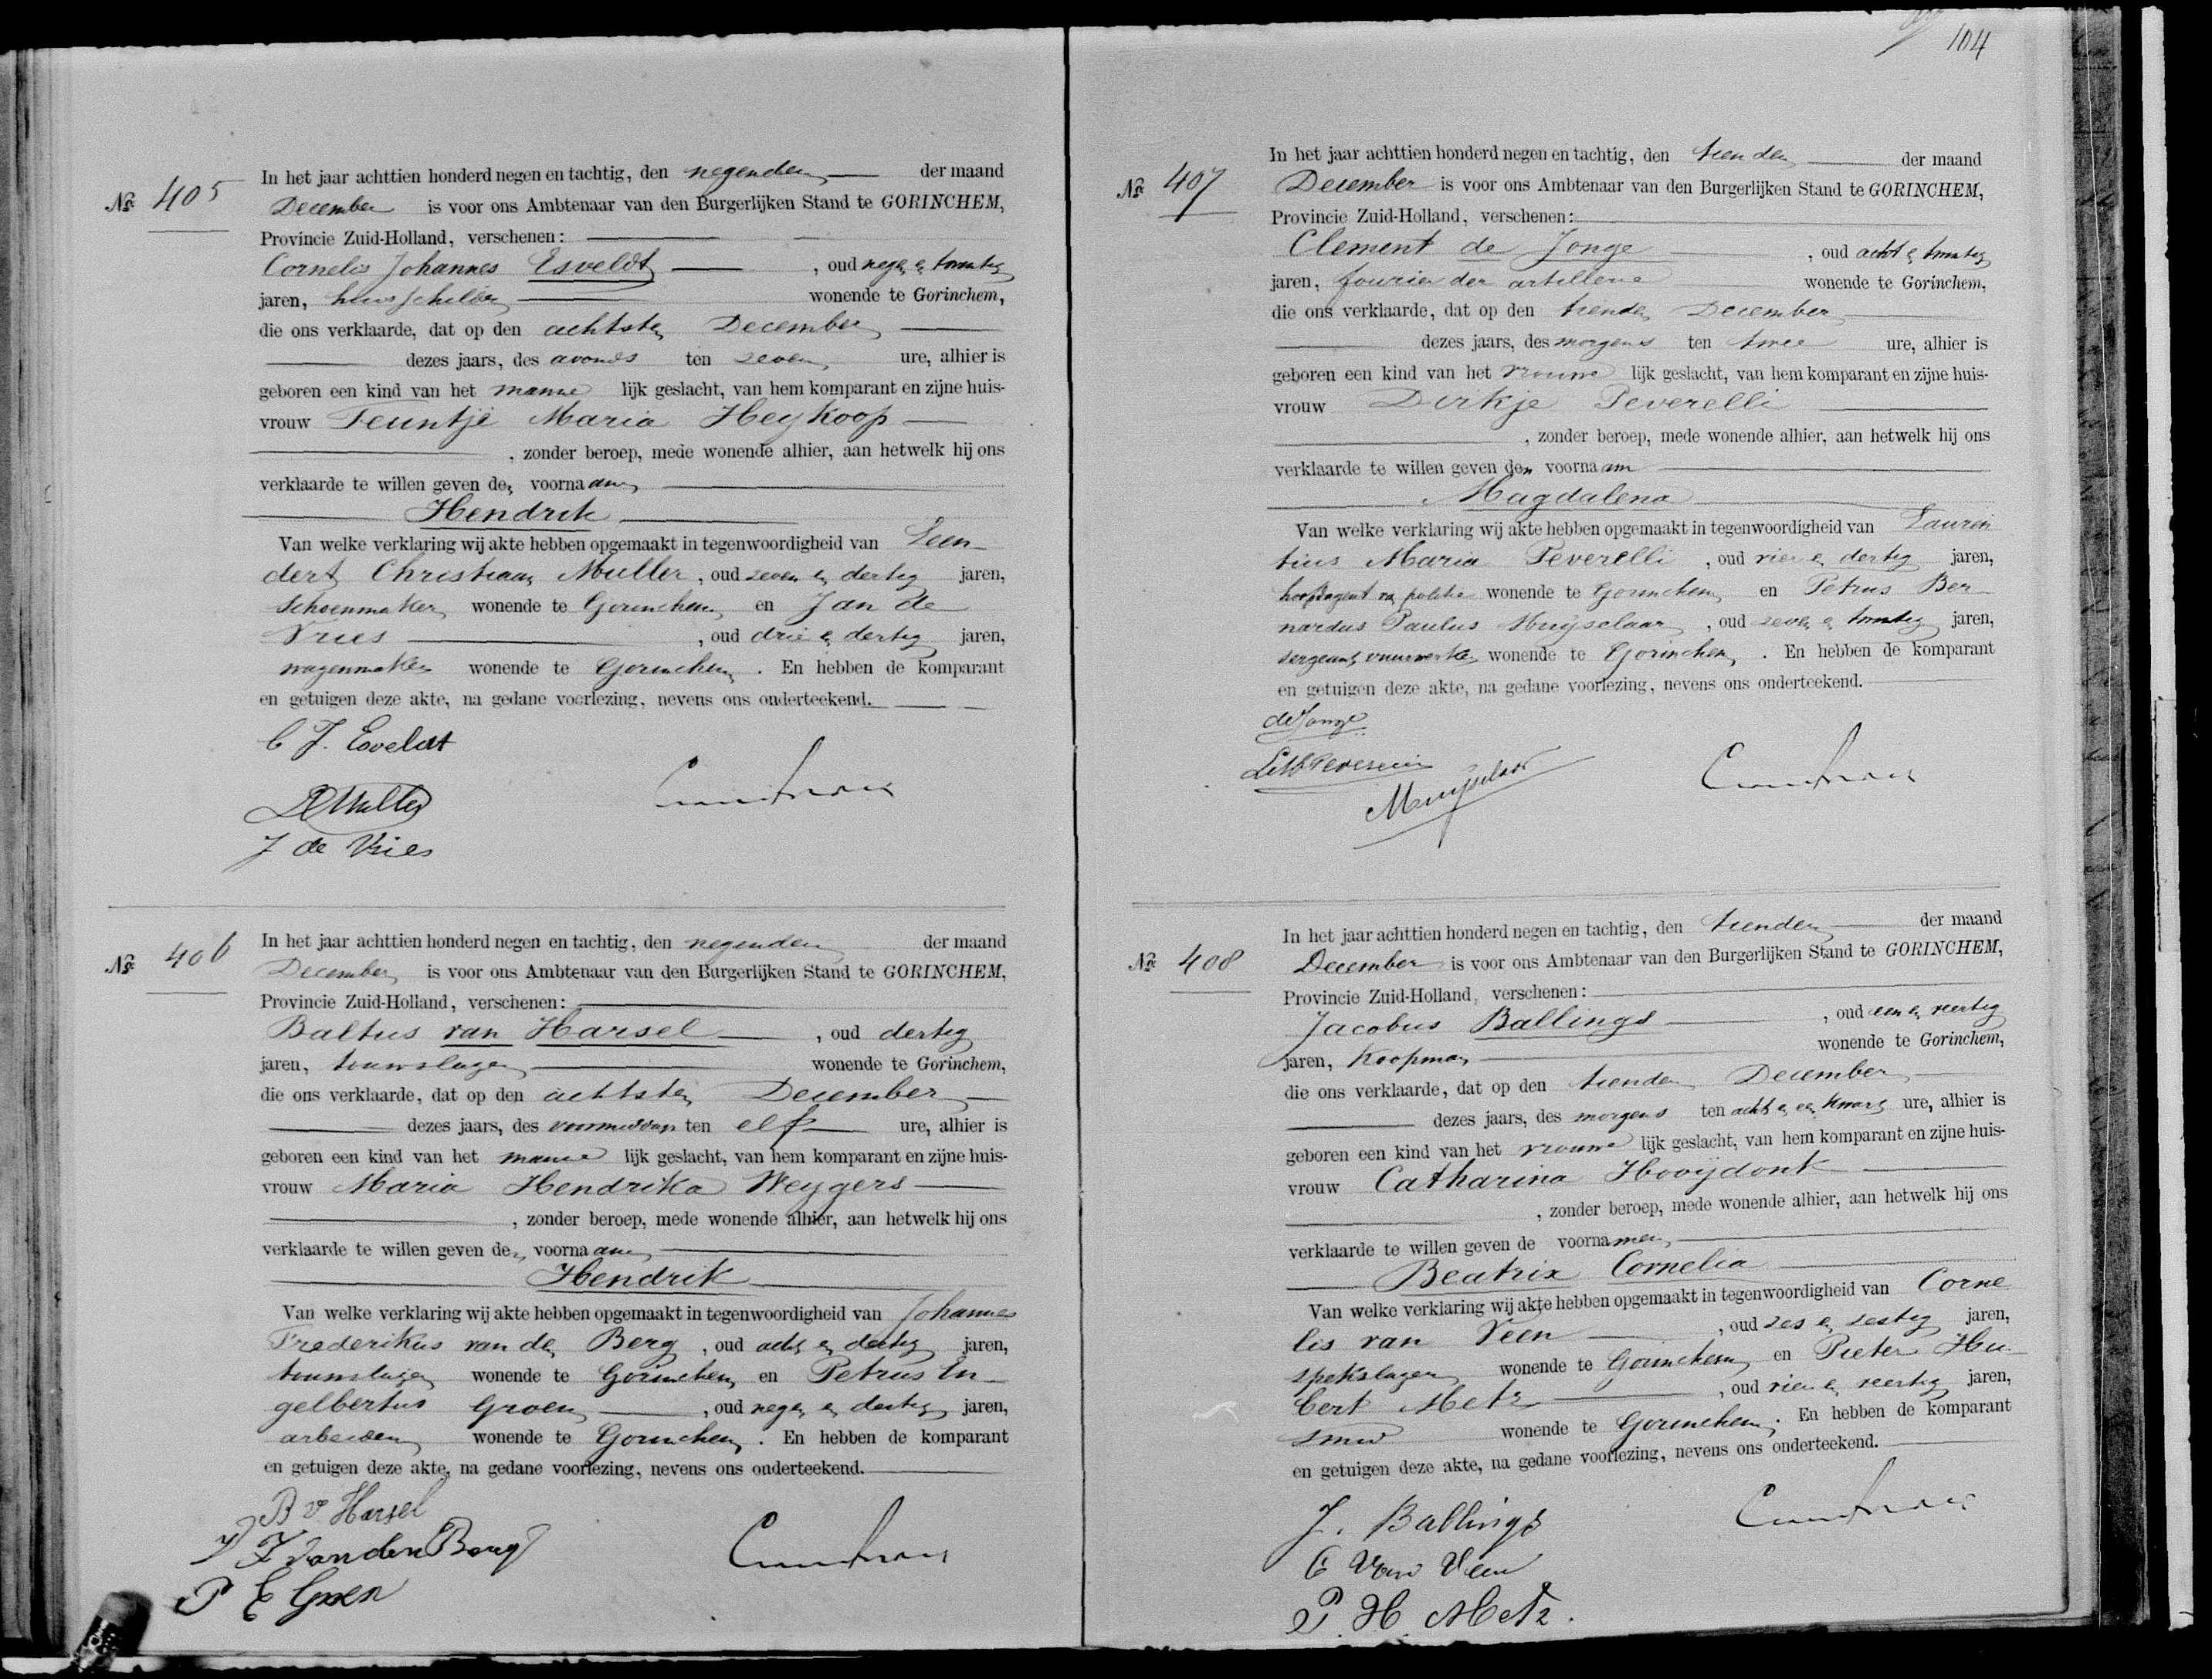 No. 405
In het jaar achttien honderd negen en tachtig, den negenden der maand
December is voor ons Ambtenaar van den Burgerlijken Stand te GORINCHEM,
Provincie Zuid-Holland, verschenen:
Cornelis Johannes Esveldt, oud negen en twintig
jaren, huisschilder wonende te Gorinchem,
die ons verklaarde, dat op den achtsten December
dezes jaars, des avonds ten zeven ure, alhier is
geboren een kind van het manne lijk geslacht, van hem komparant en zijne huis-
vrouw Teuntje Maria Heykoop
, zonder beroep, mede wonende alhier, aan hetwelk hij ons
verklaarde te willen geven den voornaam
Hendrik
Van welke verklaring wij akte hebben opgemaakt in tegenwoordigheid van Leen-
dert Christiaan Muller, oud zeven en dertig jaren,
schoenmaker wonende te Gorinchem en Jan de
Vries, oud drie en dertig jaren,
wagenmaker wonende te Gorinchem. En hebben de komparant
en getuigen deze akte, na gedane voorlezing, nevens ons onderteekend.
C J. Esveldt
LC Muller
J de Vries
No. 406
In het jaar achttien honderd negen en tachtig, den negenden der maand
December is voor ons Ambtenaar van den Burgerlijken Stand te GORINCHEM,
Provincie Zuid-Holland, verschenen:
Baltus van Harsel, oud dertig
jaren, touwslager wonende te Gorinchem,
die ons verklaarde, dat op den achtsten December
dezes jaars, des voormiddags ten elf ure, alhier is
geboren een kind van het manne lijk geslacht, van hem komparant en zijne huis-
vrouw Maria Hendrika Weygers
, zonder beroep, mede wonende alhier, aan hetwelk hij ons
verklaarde te willen geven den voornaam
Hendrik
Van welke verklaring wij akte hebben opgemaakt in tegenwoordigheid van Johannes
Frederikus van den Berg, oud acht en dertig jaren,
touwslager wonende te Gorinchem en Petrus En-
gelbertus Groen, oud negen en dertig jaren,
arbeider wonende te Gorinchem. En hebben de komparant
en getuigen deze akte, na gedane voorlezing, nevens ons onderteekend.
B v Harsel
J F van den Berg
P E Groen
104
No. 407
In het jaar achttien honderd negen en tachtig, den tienden der maand
December is voor ons Ambtenaar van den Burgerlijken Stand te GORINCHEM,
Provincie Zuid-Holland, verschenen:
Clement de Jonge, oud acht en twintig
jaren, fourier der artillerie wonende te Gorinchem,
die ons verklaarde, dat op den tienden December
dezes jaars, des morgens ten twee ure, alhier is
geboren een kind van het vrouwe lijk geslacht, van hem komparant en zijne huis-
vrouw Dirkje Peverelli
, zonder beroep, mede wonende alhier, aan hetwelk hij ons
verklaarde te willen geven den voornaam
Magdalena
Van welke verklaring wij akte hebben opgemaakt in tegenwoordigheid van Lauren
tius Maria Peverelli, oud vier en dertig jaren,
hoofdagent van politie wonende te Gorinchem en Petrus Ber-
nardus Paulus Muijselaar, oud zeven en twintig jaren,
sergeant vuurwerker wonende te Gorinchem. En hebben de komparant
en getuigen deze akte, na gedane voorlezing, nevens ons onderteekend.
de Jonge
LM Peverelli
Muijselaar
No. 408
In het jaar achttien honderd negen en tachtig, den tienden der maand
December is voor ons Ambtenaar van den Burgerlijken Stand te GORINCHEM,
Provincie Zuid-Holland, verschenen:
Jacobus Ballings, oud een en veertig
jaren, Koopman wonende te Gorinchem,
die ons verklaarde, dat op den tienden December
dezes jaars, des morgens ten acht en een kwart ure, alhier is
geboren een kind van het vrouwe lijk geslacht, van hem komparant en zijne huis-
vrouw Catharina Hooijdonk
, zonder beroep, mede wonende alhier, aan hetwelk hij ons
verklaarde te willen geven de voornamen
Beatrix Cornelia
Van welke verklaring wij akte hebben opgemaakt in tegenwoordigheid van Corne
lis van Veen, oud zes en zestig jaren,
spekslager wonende te Gorinchem en Pieter Hu-
bert Metz, oud vier en veertig jaren,
smid wonende te Gorinchem. En hebben de komparant
en getuigen deze akte, na gedane voorlezing, nevens ons onderteekend.
J. Ballings
C van Veen
P. H. Metz.